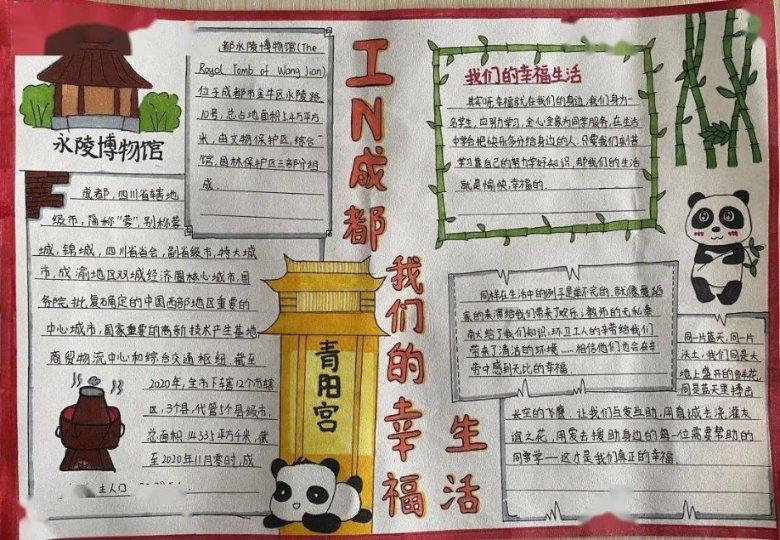 永陵博物馆
都永陵博物馆(The
Royal Tomb of Wang Jian)
位于成都市金牛区永陵路
10号,总占地面积5.4万平方
米,由文物保护区,综合
馆,园林保护区三部分组
成.
成都,四川省辖地
级市,简称"蓉",别称蓉
城,锦城,四川省省会,副省级市,特大城
市,成渝地区双城经济圈核心城市,国
务院批复确定的中国西部地区重要的
中心城市,国家重要的高新技术产生基地
商贸物流中心和综合交通枢纽.截至
2020年,全市下车辖12个市辖
区,3个县,代管5个县级市,
总面积14335平方千米,截
至2020年11月零时,成
主人口
工N成都
我们的幸福
生活
青阳宫
我们的幸福生活
其实呀幸福就在我们的身边,我们身为一
名学生,应努力学习,全心全意为同学服务,在生活
中学会把快乐多分给身边的人,只要我们刻苦
学习靠自己的努力学好知识,那我们的生活
就是愉快,幸福的.
同样在生活中的例子是举不完的,
家的表演给我们带来了欢乐;教师的无私奉
献给了我们知识;环卫工人的辛劳给我们
带来了清洁的环境……相信他们也会在辛
劳中感到无比的幸福
同一片蓝天,同一片
沃土,我们同是大
地上盛开的鲜花,
同是蓝天里搏击
长空的飞鹰,让我们与爱互助,用真诚去浇灌友
谊之花,用爱去援助身边的每一位需要帮助的
同事学一这才是我们真正的幸福.